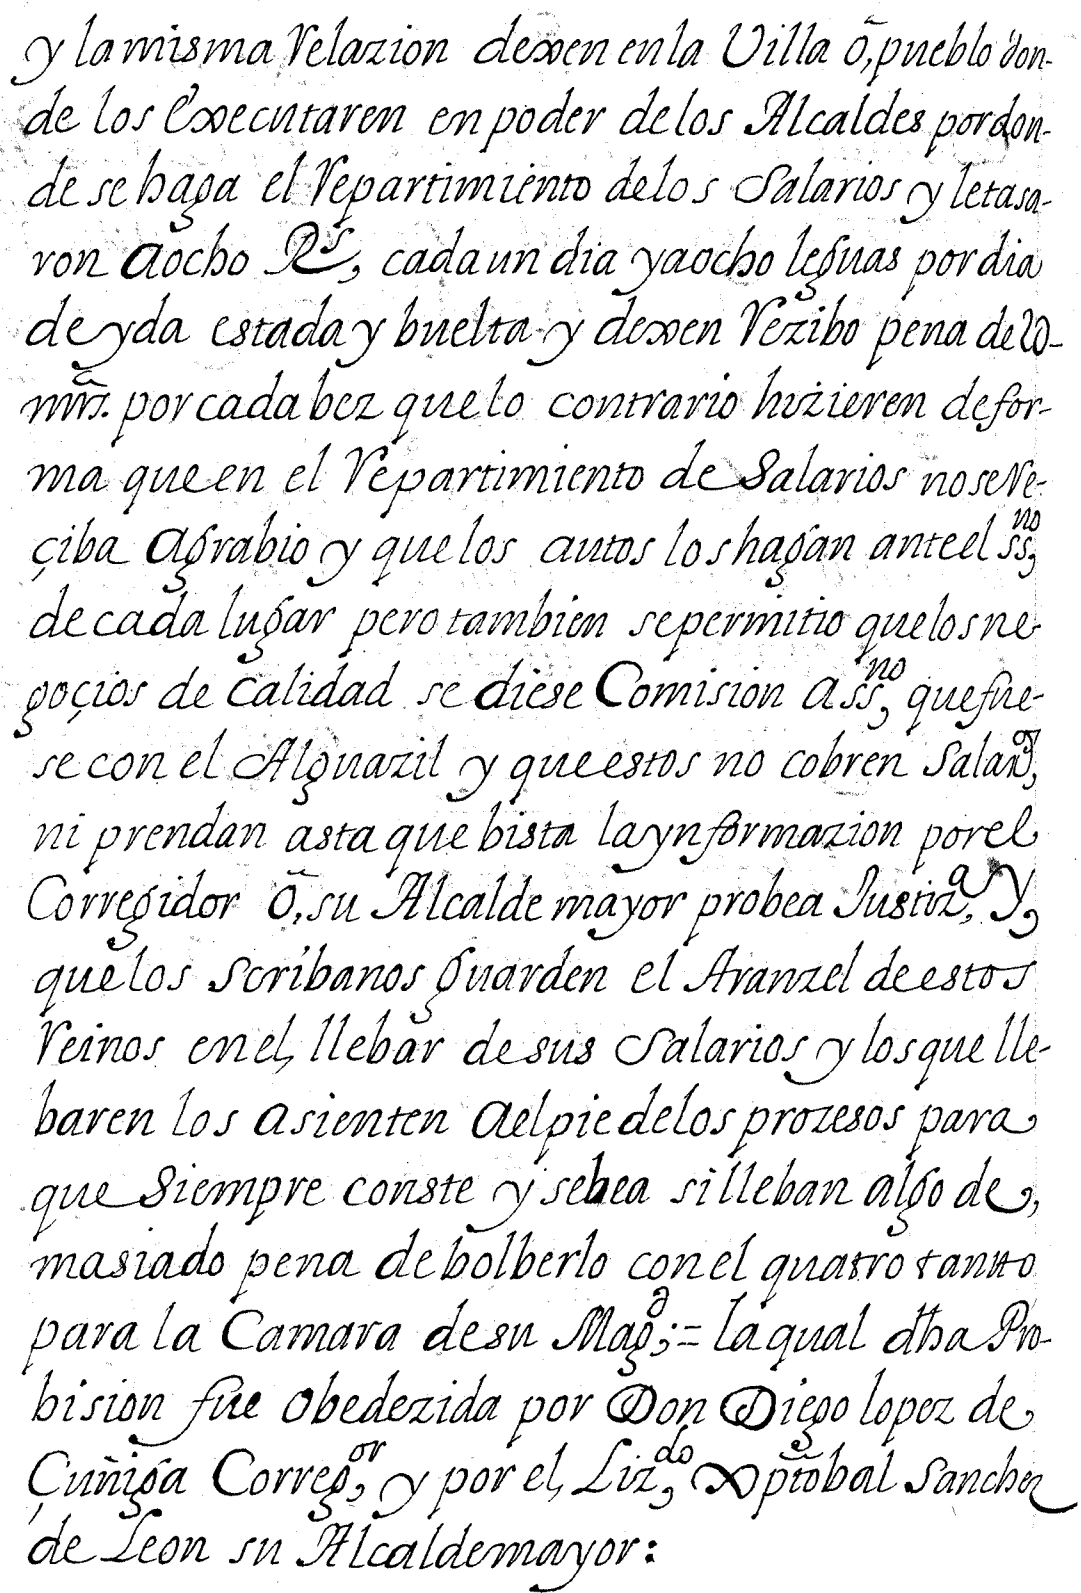 y la misma Relazion dexen en la Villa õ, pueblo don-
de los Executaren en poder de los Alcaldes por don-
de se haga el Repartimiento de los Salarios y le tasa-
ron a ocho Rs, cada un dia y a ocho leguas por dia
de yda estada y buelta y dexen Rezibo pena de 20-
mrs. por cada bez que lo contrario hizieren de for-
ma que en el Repartimiento de Salarios no se Re-
çiba Agrabio y que los autos los hagan ante el ssno,
de cada lugar pero tambien se permitio que los ne-
goçios de Calidad se diese Comision a ssno, que fue-
se con el Alguazil y que estos no cobren Salarº,
ni prendan asta que bista la ynformazion por el
Corregidor õ, su Alcalde mayor probea Justizª, Y,
que los Scribanos guarden el Aranzel de estos
Reinos en el, llebar de sus Salarios y los que lle-
baren los asienten a el pie de los prozesos para
que Siempre conste y se bea si lleban algo de,
masiado pena de bolberlo con el quatro tanto
para la Camara de su Magd; = la qual dha Pro-
bision fue obedezida por Don Diego lopez de
Çuñiga Corregor, y por el, Lizdo, Xptobal Sanchez
de Leon su Alcalde mayor: